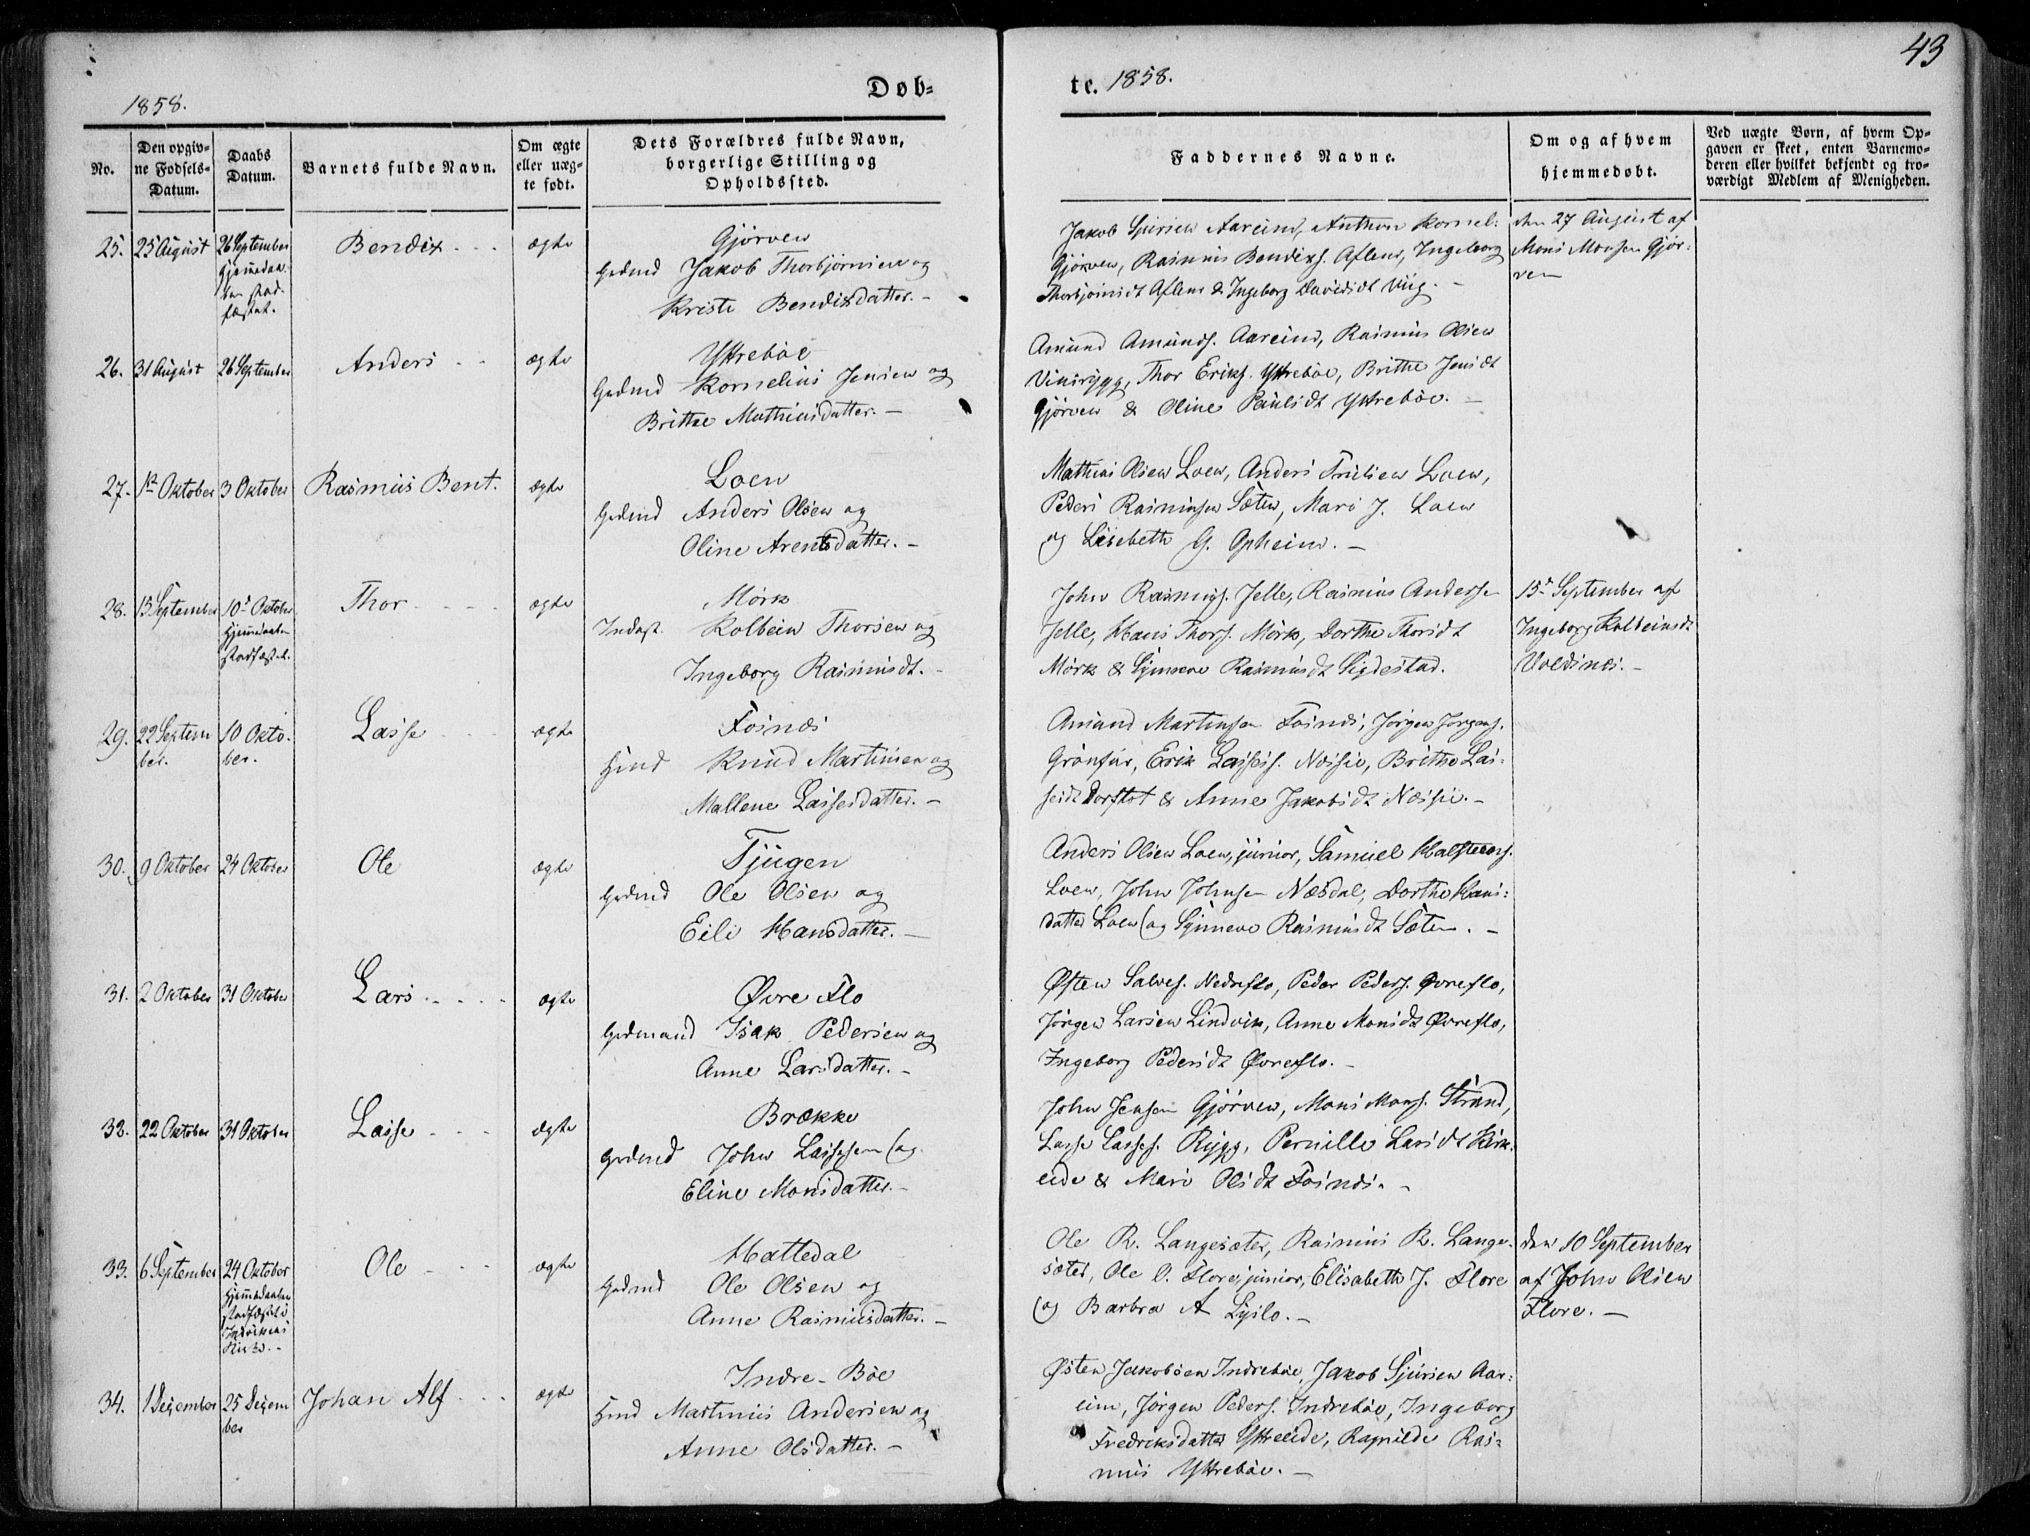 43
1858.
Døb-
te. 1858.
No.
Den opgiv-
ne Fødsels-
Datum.
Daabs
Datum.
Barnets fulde Navn.
Om ægte
eller uæg-
te født.
Dets Forældres fulde Navn,
borgerlige Stilling og
Opholdssted.
Faddernes Navne.
Om og af hvem
hjemmedøbt.
Ved uægte Børn, af hvem Op-
gaven er skeet, enten Barnemo-
deren eller hvilket bekjendt og tro-
værdigt Medlem af Menigheden.
25. 25 August 26 September
Hjemmedaa-
ben stad-
fæstet.
Bendix
ægte
Gjørven
Gdmd Jakob Thorbjørnsen og
Kristi Bendixdatter. -
Jakob Sjursen Aareim, Anthon Kornel.
Gjørven, Rasmus Bendixs. Aflem, Ingeborg
Thorbjørnsdt Aflem & Ingeborg Davidsdt Viig. -
den 27 August af
Mons Monsen Gjør-
ven
26. 31 August 26 September
Anders
ægte
Yttrebøe
Gdmd Kornelius Jensen og
Brithe Mathiasdatter. -
Amund Amunds. Aareim, Rasmus Olsen
Vinsrygg, Thor Eriks. Yttrebøe, Brithe Jensdt
Gjørven & Oline Paulsdt Yttrebøe. -
27. 1st Oktober 3 Oktober
Rasmus Bent.
ægte
Loen
Gdmd Anders Olsen og
Oline Arentsdatter. -
Mathias Olsen Loen, Anders Trulsen Loen,
Peders Rasmusen Sæten, Mari J. Loen
og Lisebeth G. Opheim. -
28. 15 September 10de Oktober
Hjemmedaaben
stadfæstet.
Thor
ægte
Mørk
Inderst. Kolbein Thorsen og
Ingeborg Rasmusdt. -
John Rasmuss. Jelle, Rasmus Anderssen
Jelle, Hans Thors. Mørk, Dorthe Thorsdt
Mørk & Synneve Rasmusdt Sigdestad.
15de September af
Ingeborg Kolbeinsdt
Voldsnes. -
29. 22 Septem-
ber.
10 Okto-
ber.
Lasse
ægte
Fosnes
Hmd Knud Martinsen og
Mallene Lassesdatter. -
Amund Martinsen Fosnes, Jørgen Jørgens.
Grönfur, Erik Lasses. Nos, Brithe Las-
sesdt Dorflot & Anne Jakobsdt Nos. -
30. 9 Oktober 24 Oktober
Ole
ægte
Tjugen
Gdmd Ole Olsen og
Eili Hansdatter. -
Anders Olsen Loen, junior, Samuel Halsteens.
Loen, John Johnsen Næsdal, Dorthe Hans-
datter Loen og Synneve Rasmusdt Sæten. -
31. 2 Oktober 31 Oktober
Lars
ægte
Øvre Flo
Gdmand Isak Pedersen og
Anne Larsdatter. -
Østen Salves. Nedreflo, Peder Peders. Øvreflo,
Jørgen Larsen Lindvik, Anne Monsdt Øvreflo,
Ingeborg Pedersdt Øvreflo. -
32. 22 Oktober 31 Oktober
Lasse
ægte
Brække
Gdmd John Lassesen og
Eline Monsdatter. -
John Jensen Gjørven, Mons Mons. Strand,
Lasse Lasses. Rygg, Pernille Larsdt Kirk-
eide & Mari Olsdt Fosnes. -
33. 6 September 24 Oktober
Hjemmedaaben
stadfæstet i
Indvikens
Kirke. -
Ole
ægte
Hattedal
Gdmd Ole Olsen og
Anne Rasmusdatter. -
Ole R. Langesæter, Rasmus R. Lange-
sæter, Ole O. Flore, junior, Elisabeth J. Flore
og Barbra A Lyslo. -
den 10 September
af John Olsen
Flore. -
34. 1 Dezember 25 Dezem-
ber
Johan Alf
ægte
Indre-Bøe
Hmd Martinus Andersen og
Anne Olsdatter. -
Østen Jakobsen Indrebøe, Jakob Sjursen Aar-
eim, Jørgen Peders. Indrebøe, Ingeborg
Fredriksdatter Yttreeide, Ragnilde Ras-
mus Yttrebøe. -